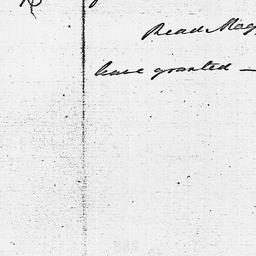 Read Mag
have granted —